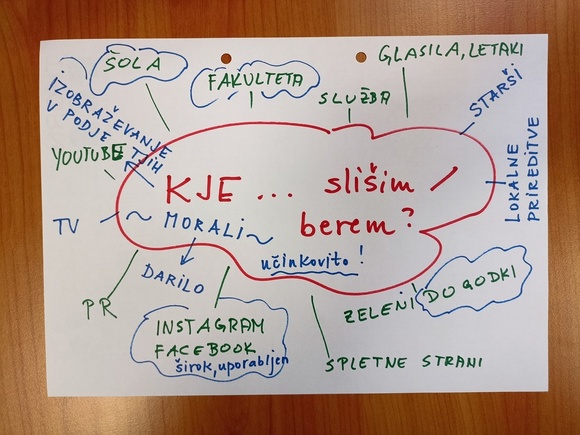 ŠOLA
FAKULTETA
SLUŽBA
GLASILA, LETAKI
STARŠI
LOKALNE
PRIREDITVE
IZOBRAŽEVANJE
V PODJE
TJIH
YOUTUBE
KJE ... slišim /
berem?
TV
~ MORALI ~
učinkovito!
DARILO
PR
INSTAGRAM
FACEBOOK
širok, uporabljen
ZELENI DOGODKI
SPLETNE STRANI